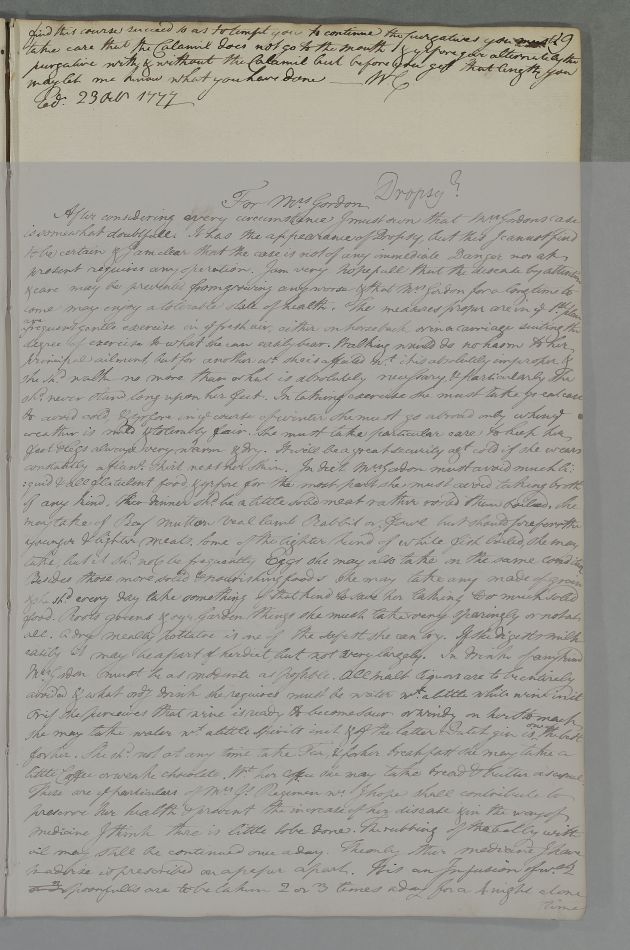 find this course succeed so as to tempt you to continue the purgatives you must 169
take care that the Calamil does not go to the mouth & yrfore give alternately the
purgative with & without the Calamil but before you get that length you
may let me know what you have done W C
Edr. 23 Octr 1777
For Mrs Gordon Dropsy?
After considering every circumstance I must own that Mrs Gordons case
is somewhat doubtfull. It has the appearance of Dropsy but this I cannot find
to be certain & I am clear that the case is not of any immediate Danger nor at
present requires any operation. I am very hopefull that the disease by attention
& care may be prevented from growing any worse & that Mrs Gordon for a long time to
come may enjoy a tolerable state of health. The measures proper are in ye 1st place
frequent gentle exercise in ye fresh air, either on horseback or in a carriage suiting the
degree of exercise to what she can easily bear. Walking might do no harm to her
principal ailment but for another wt she is affected wt it is absolutely improper &
she shd walk no more than what is absolutely necessary & particularly she
shd never stand long upon her feet. In taking exercise she must take great care
to avoid cold, & yrfore in ye course of winter she must go abroad only when ye
weather is mild & tolerably fair. She must take particular care to keep her
feet & legs always very warm & dry. It will be a great security agt cold if she wears
constantly a flannel shirt next her skin. In diet Mrs Gordon must avoid much li
:quid & all flatulent food & yrfore for the most part she must avoid taking broth
of any kind. Her dinner shd be a little solid meat rather roasted than boiled. She
may take of Beef Mutton Veal lamb Rabbit or Fowl but should prefer the
younger & lighter meats. Some of the lighter kind of white fish boiled, she may
take, but it shd not be frequently Eggs she may also take in the same condition
Besides those more solid & nourishing foods she may take any made of grain
& she shd every day take something of that kind to save her taking too much solid
food. Roots greens & oyr Garden things she must take very sparingly or not at
all. A dry mealy pottatoe is one of the safest she can try. If she digests milk
easily it may be a part of her diet but not very largely. In drink of any kind
Mrs Gordon must be as moderate as possible. All malt liquors are to be entirely
avoided & what ordy drink she requires must be water wt a little white wine in it
Or if she perceives that wine is ready to become sour or windy on her stomach
she may take water wt a little spirits in it & of the latter Dutch gin is the best
for her. She shd not at any time take Tea & for her breakfast she may take a
little Coffee or weak chocolate. Wt her Coffee she may take bread & butter as usual.
These are ye particulars of Mrs Gs Regimen wc I hope shall contribute to
preserve her health & prevent the increase of her disease & in the way of
medicine I think there is little to be done. The rubbing of the belly with
oil may still be continued once a day. The only other medicine I have
to advise is prescribed on a paper apart. It is an Infusion of wc 2
or 3 spoonfulls are to be taken 2 or 3 times a day for a
time